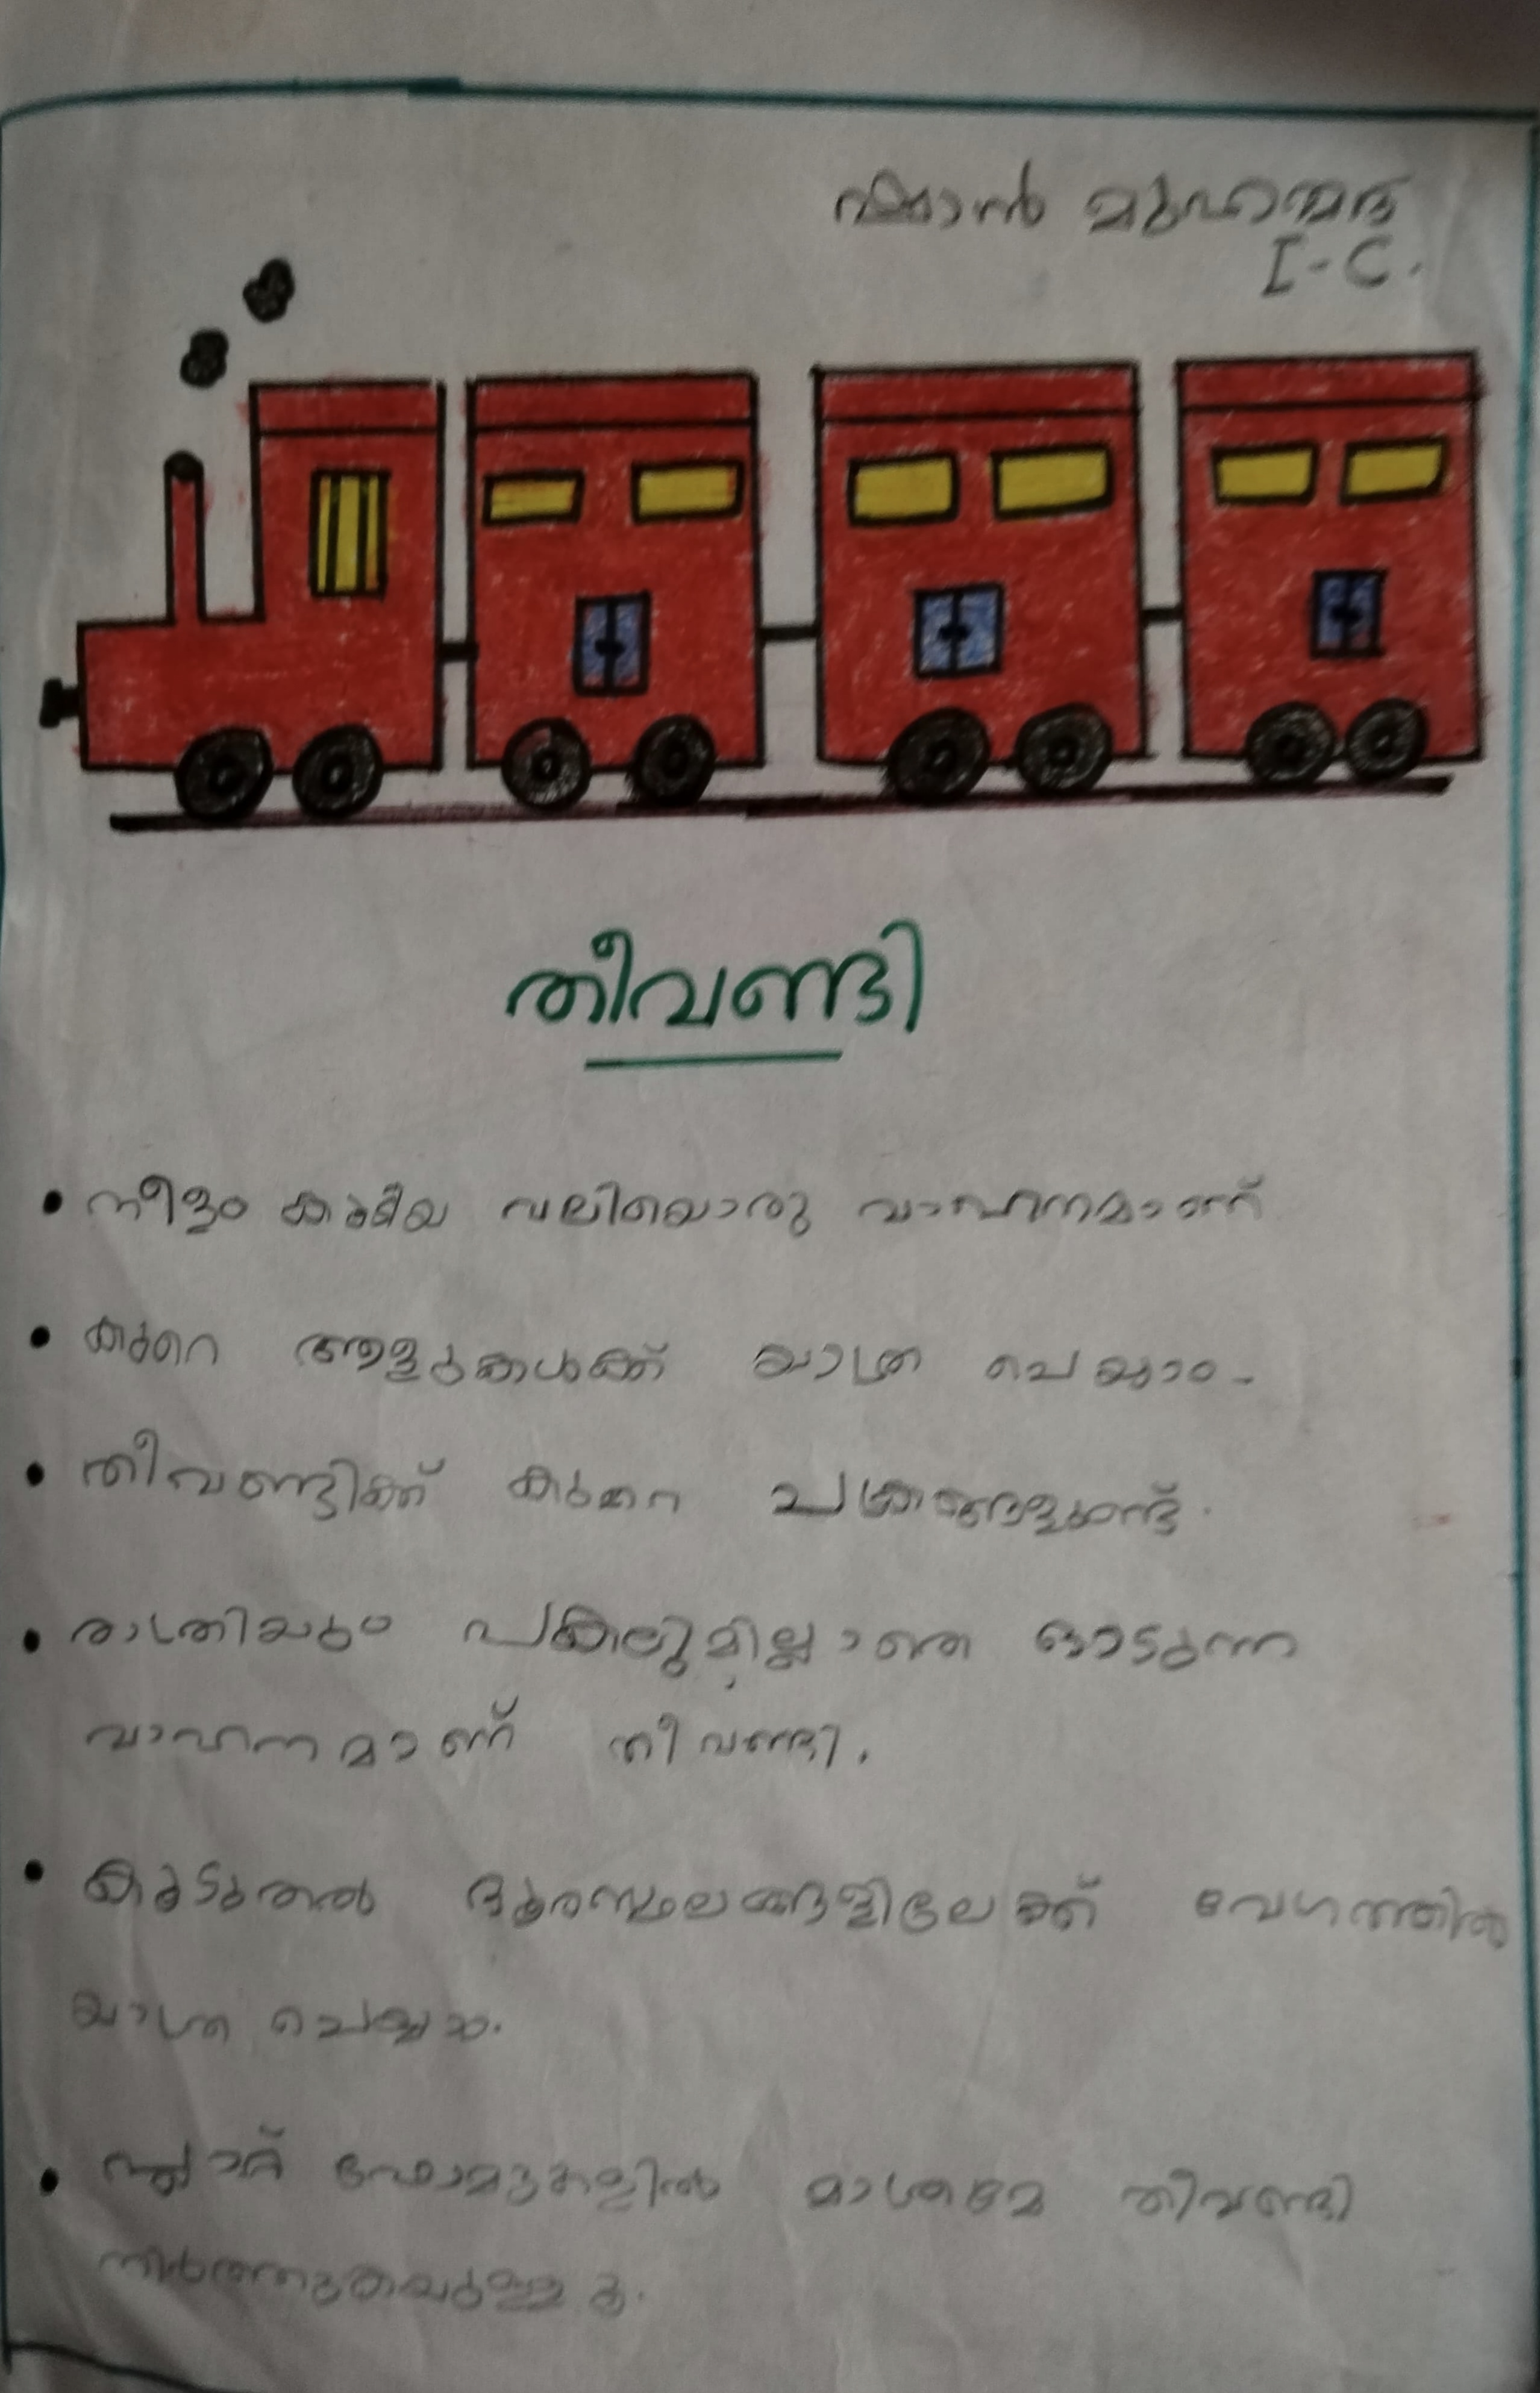 ഷാൻ മുഹമ്മദ്
I-C.
തീവണ്ടി
• നീളം കൂടിയ വലിയൊരു വാഹനമാണ്
• കുറെ ആളുകൾക്ക് യാത്ര ചെയ്യാം.
• തീവണ്ടിക്ക് കുറെ ചക്രങ്ങളുണ്ട്.
• രാത്രിയും പകലുമില്ലാതെ ഓടുന്ന
വാഹനമാണ് തീവണ്ടി.
• കൂടുതൽ ദൂരസ്ഥലങ്ങളിലേക്ക് വേഗത്തിൽ
യാത്ര ചെയ്യാം.
• പ്ലാറ്റ് ഫോമുകളിൽ മാത്രമേ തീവണ്ടി
നിർത്തുകയുള്ളൂ.